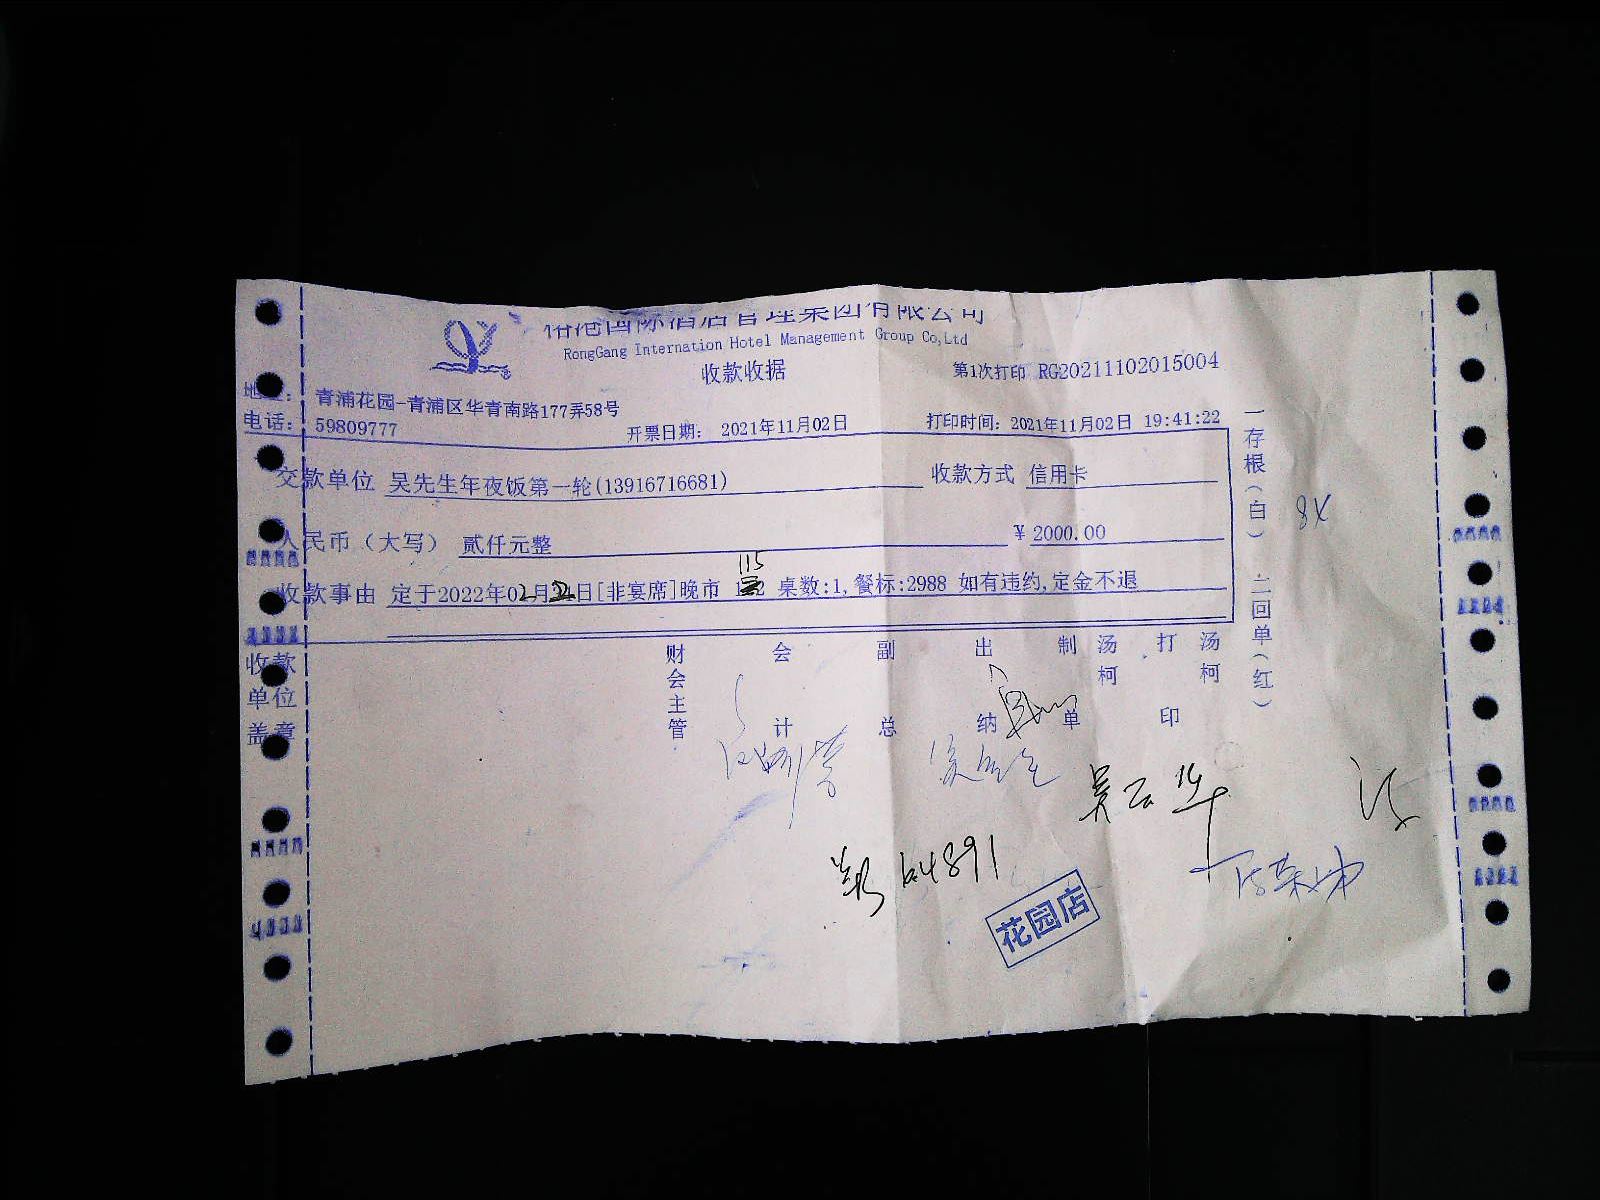 国际酒店管理集团有限公司
RongGang Internation Hotel Management Group Co,Ltd
收款收据
第1次打印 RG20211102015004
青浦花园-青浦区华青南路177弄58号
电话: 59809777 开票日期: 2021年11月02日 打印时间: 2021年11月02日 19:41:22
交款单位 吴先生年夜饭第一轮(13916716681) 收款方式 信用卡
人民币（大写） 贰仟元整 ¥ 2000.00
115
收款事由 定于2022年02月 日[非宴席]晚市 桌数:1,餐标:2988 如有违约,定金不退
一存根（白） 二回单（红）
8X
收款单位盖章
财会主管 会计 副总 出纳 制单 汤柯 打印 汤柯
吴云华
64891
花园店